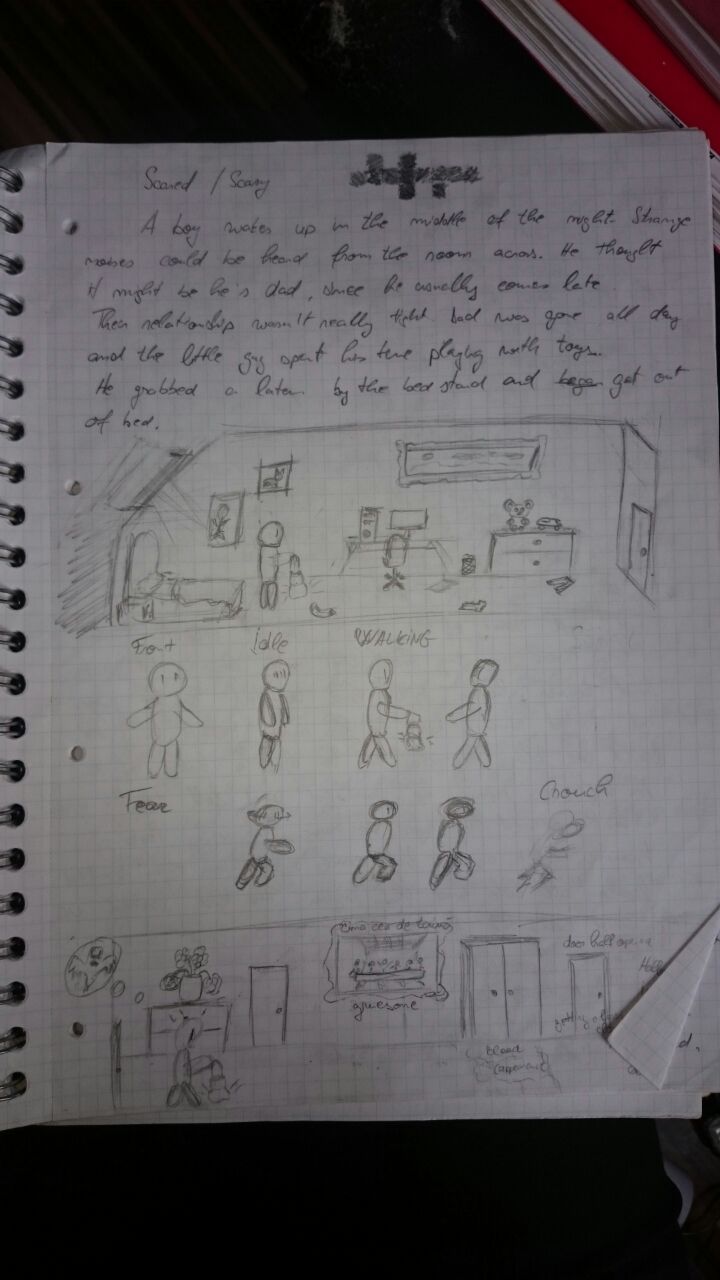 Scared / Scary
A boy wakes up in the middle of the night. Strange
noises could be heard from the room across. He thought
it might be he's dad, since he usually comes late.
Their relationship wasn't really tight. Dad was gone all day
and the little guy spent his time playing with toys.
He grabbed a latern by the bed stand and began get out
of bed.
Front
Idle
WALKING
Fear
Crouch
Cina cea de taină
door half open
gruesome
blood